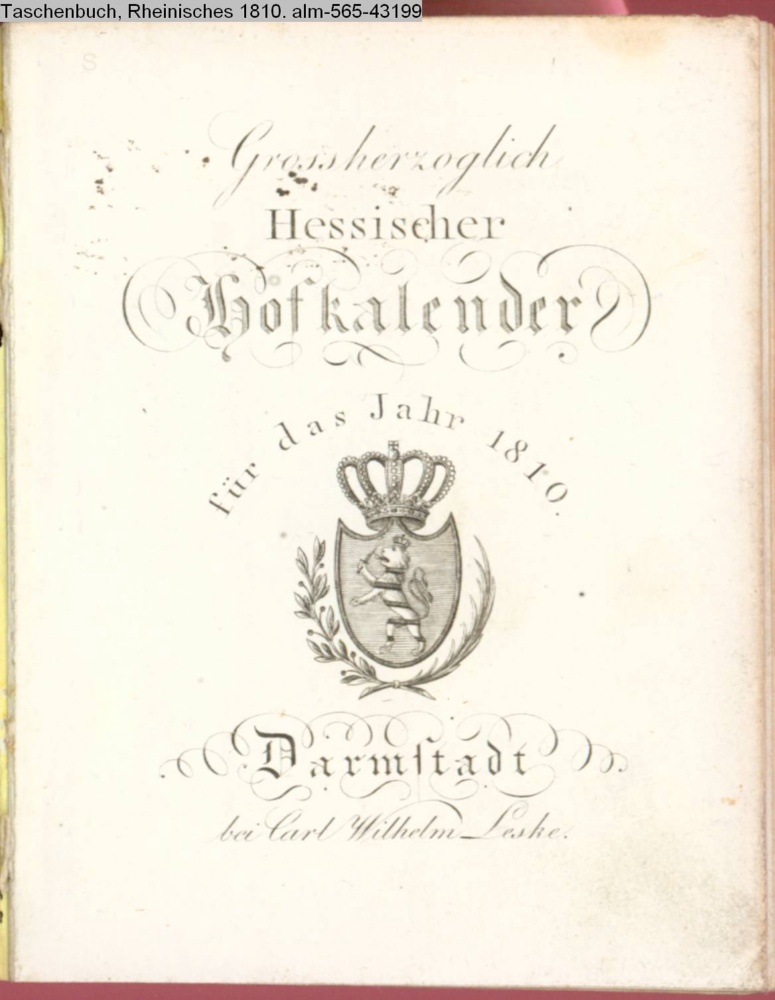 Taschenbuch, Rheinisches 1810. alm-565-43199
S
Grossherzoglich
Hessischer
Hofkalender
für das Jahr 1810.
Darmſtadt
bei Carl Wilhelm Leske.